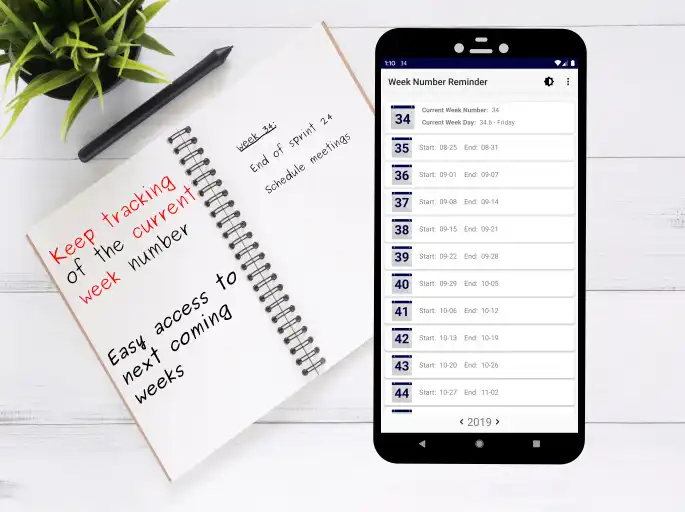 Keep tracking
of the current
week number
Easy access to
next coming
weeks
week 34:
End of sprint 24
Schedule meetings
1:10 34
Week Number Reminder
34
Current Week Number: 34
Current Week Day: 34.6 - Friday
35 Start: 08-25 End: 08-31
36 Start: 09-01 End: 09-07
37 Start: 09-08 End: 09-14
38 Start: 09-15 End: 09-21
39 Start: 09-22 End: 09-28
40 Start: 09-29 End: 10-05
41 Start: 10-06 End: 10-12
42 Start: 10-13 End: 10-19
43 Start: 10-20 End: 10-26
44 Start: 10-27 End: 11-02
‹ 2019 ›